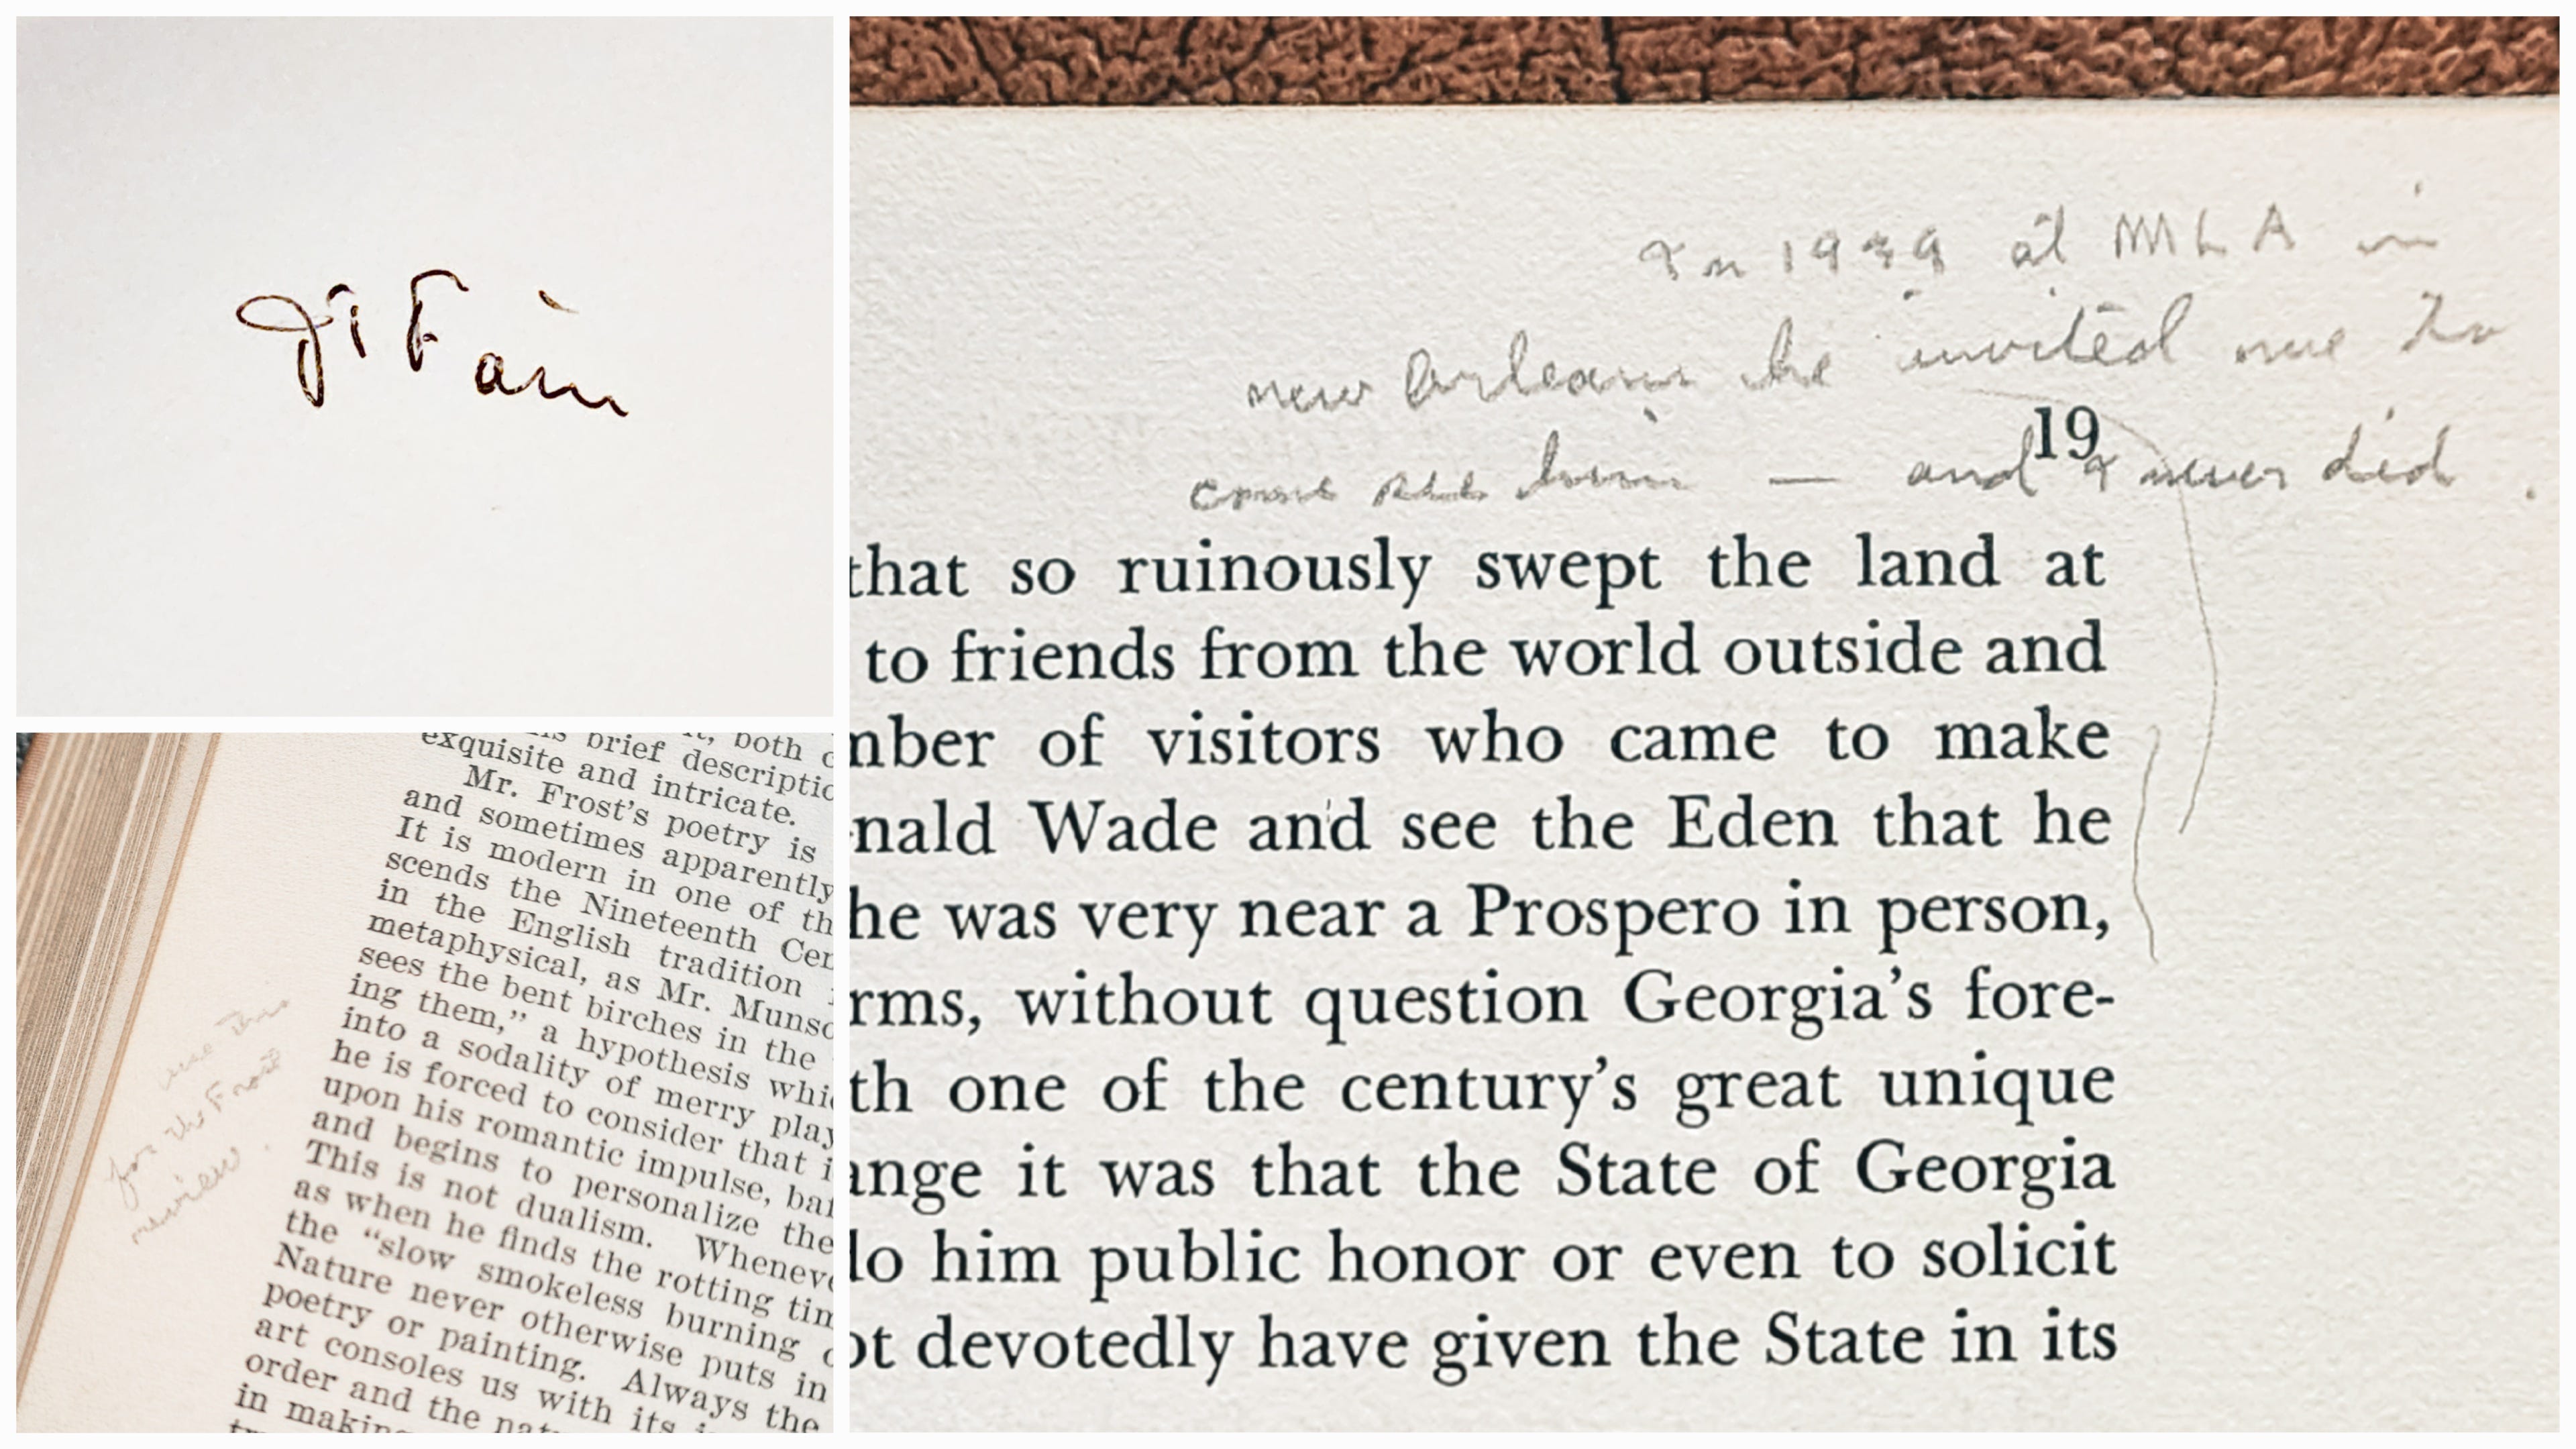 J T Fain
exquisite and intricate.
brief descriptio
both
Mr. Frost's poetry is
and sometimes apparently
It is modern in one of th
scends the Nineteenth Cen
in the English tradition
metaphysical, as Mr. Munso
sees the bent birches in the
ing them," a hypothesis whi
into a sodality of merry play
he is forced to consider that i
upon his romantic impulse, baf
and begins to personalize the
This is not dualism. Wheneve
as when he finds the rotting tim
the "slow smokeless burning o
Nature never otherwise puts in
poetry or painting. Always the
art consoles us with its
order and the nat
in making
use this
for the Frost
review.
In 1939 at MLA in
new Orleans he invited me to
19
come see him — and I never did.
that so ruinously swept the land at
to friends from the world outside and
mber of visitors who came to make
nald Wade and see the Eden that he
he was very near a Prospero in person,
rms, without question Georgia's fore-
th one of the century's great unique
ange it was that the State of Georgia
do him public honor or even to solicit
ot devotedly have given the State in its